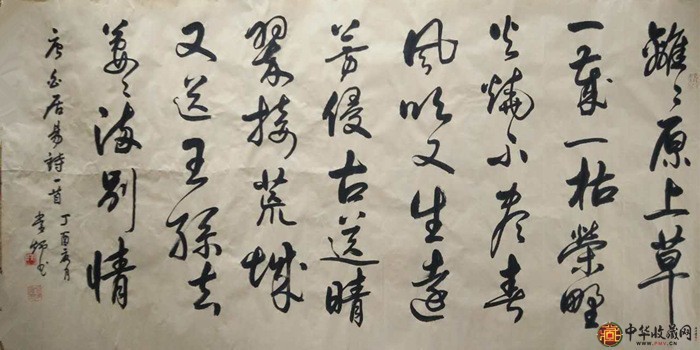 離々原上草
一歲一枯榮野
火燒不盡春
風吹又生遠
芳侵古道晴
翠接荒城
又送王孫去
萋々滿別情
唐白居易詩一首 丁酉
中华收藏网
www.PMV.CN